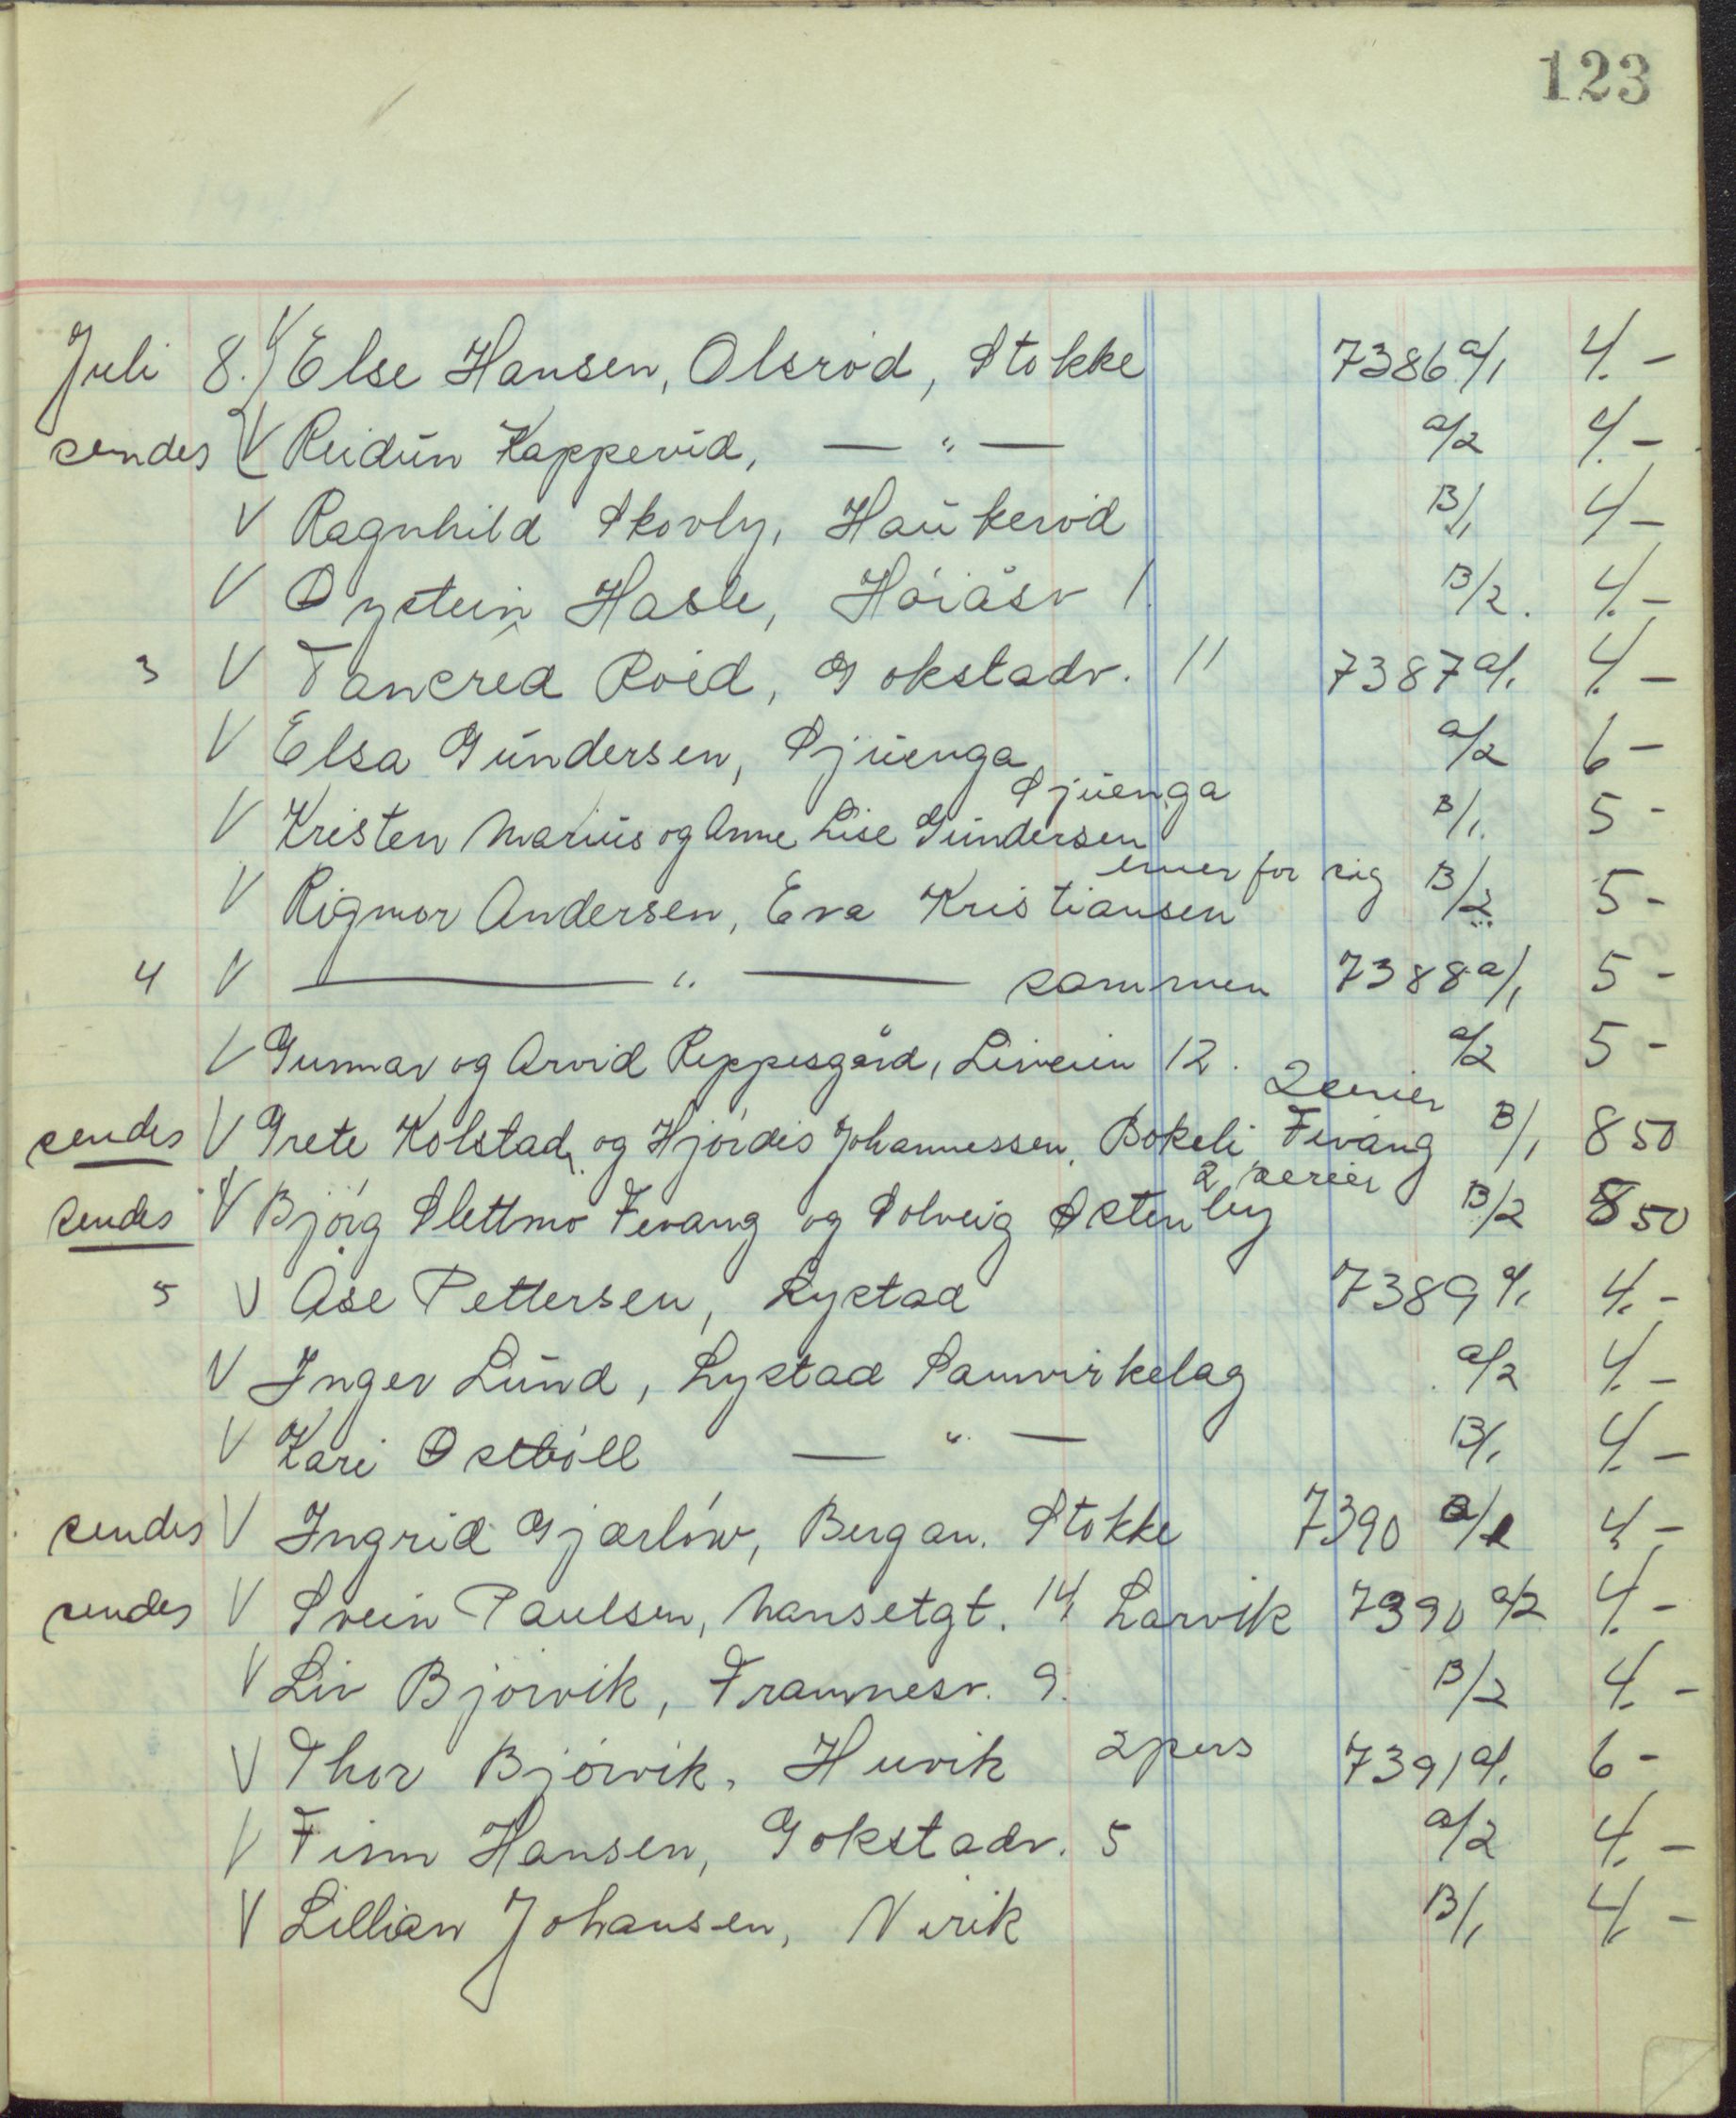 123
Juli 8. V Else Hansen, Olsrød, Stokke 7386 a/1 4.-
sendes V Reidun Kapperud, — " — a/2 4.-
V Ragnhild Skovly, Haukerød B/1 4-
V Øystein Hasle, Høiåsv 1. B/2. 4.-
3 V Tancred Roed, Gokstadv. 11 7387 a/1 4.-
V Elsa Gundersen, Sjuenga a/2 6-
V Kristen Marius og Anne Lise Gundersen Sjuenga B/1. 5-
V Rigmor Andersen, Eva Kristiansen hver for sig B/2 5-
4 V — " — sammen 7388 a/1 5-
V Gunnar og Arvid Reppesgård, Liveien 12. a/2 5-
sendes V Grete Kolstad, og Hjørdis Johannessen, Bokeli Fevang 2 serier B/1 8 50
sendes V Bjørg Slettmo Fevang og Solveig Østenby 2 serier B/2 8 50
5 V Åse Pettersen, Lystad 7389 a/1 4.-
V Inger Lund, Lystad Samvirkelag a/2 4.-
V Kari Østbøll — " — B/1 4.-
sendes V Ingrid Gjærløw, Bergan. Stokke 7390 4-
sendes V Svein Paulsen, Nansetgt. 14 Larvik 7390 a/2 4.-
V Liv Bjørvik, Framnesv. 9. B/2 4.-
V Thor Bjørvik, Huvik 2 pers 7391 a/1 6-
V Finn Hansen, Gokstadv. 5 a/2 4.-
V Lillian Johansen, Virik B/1 4.-